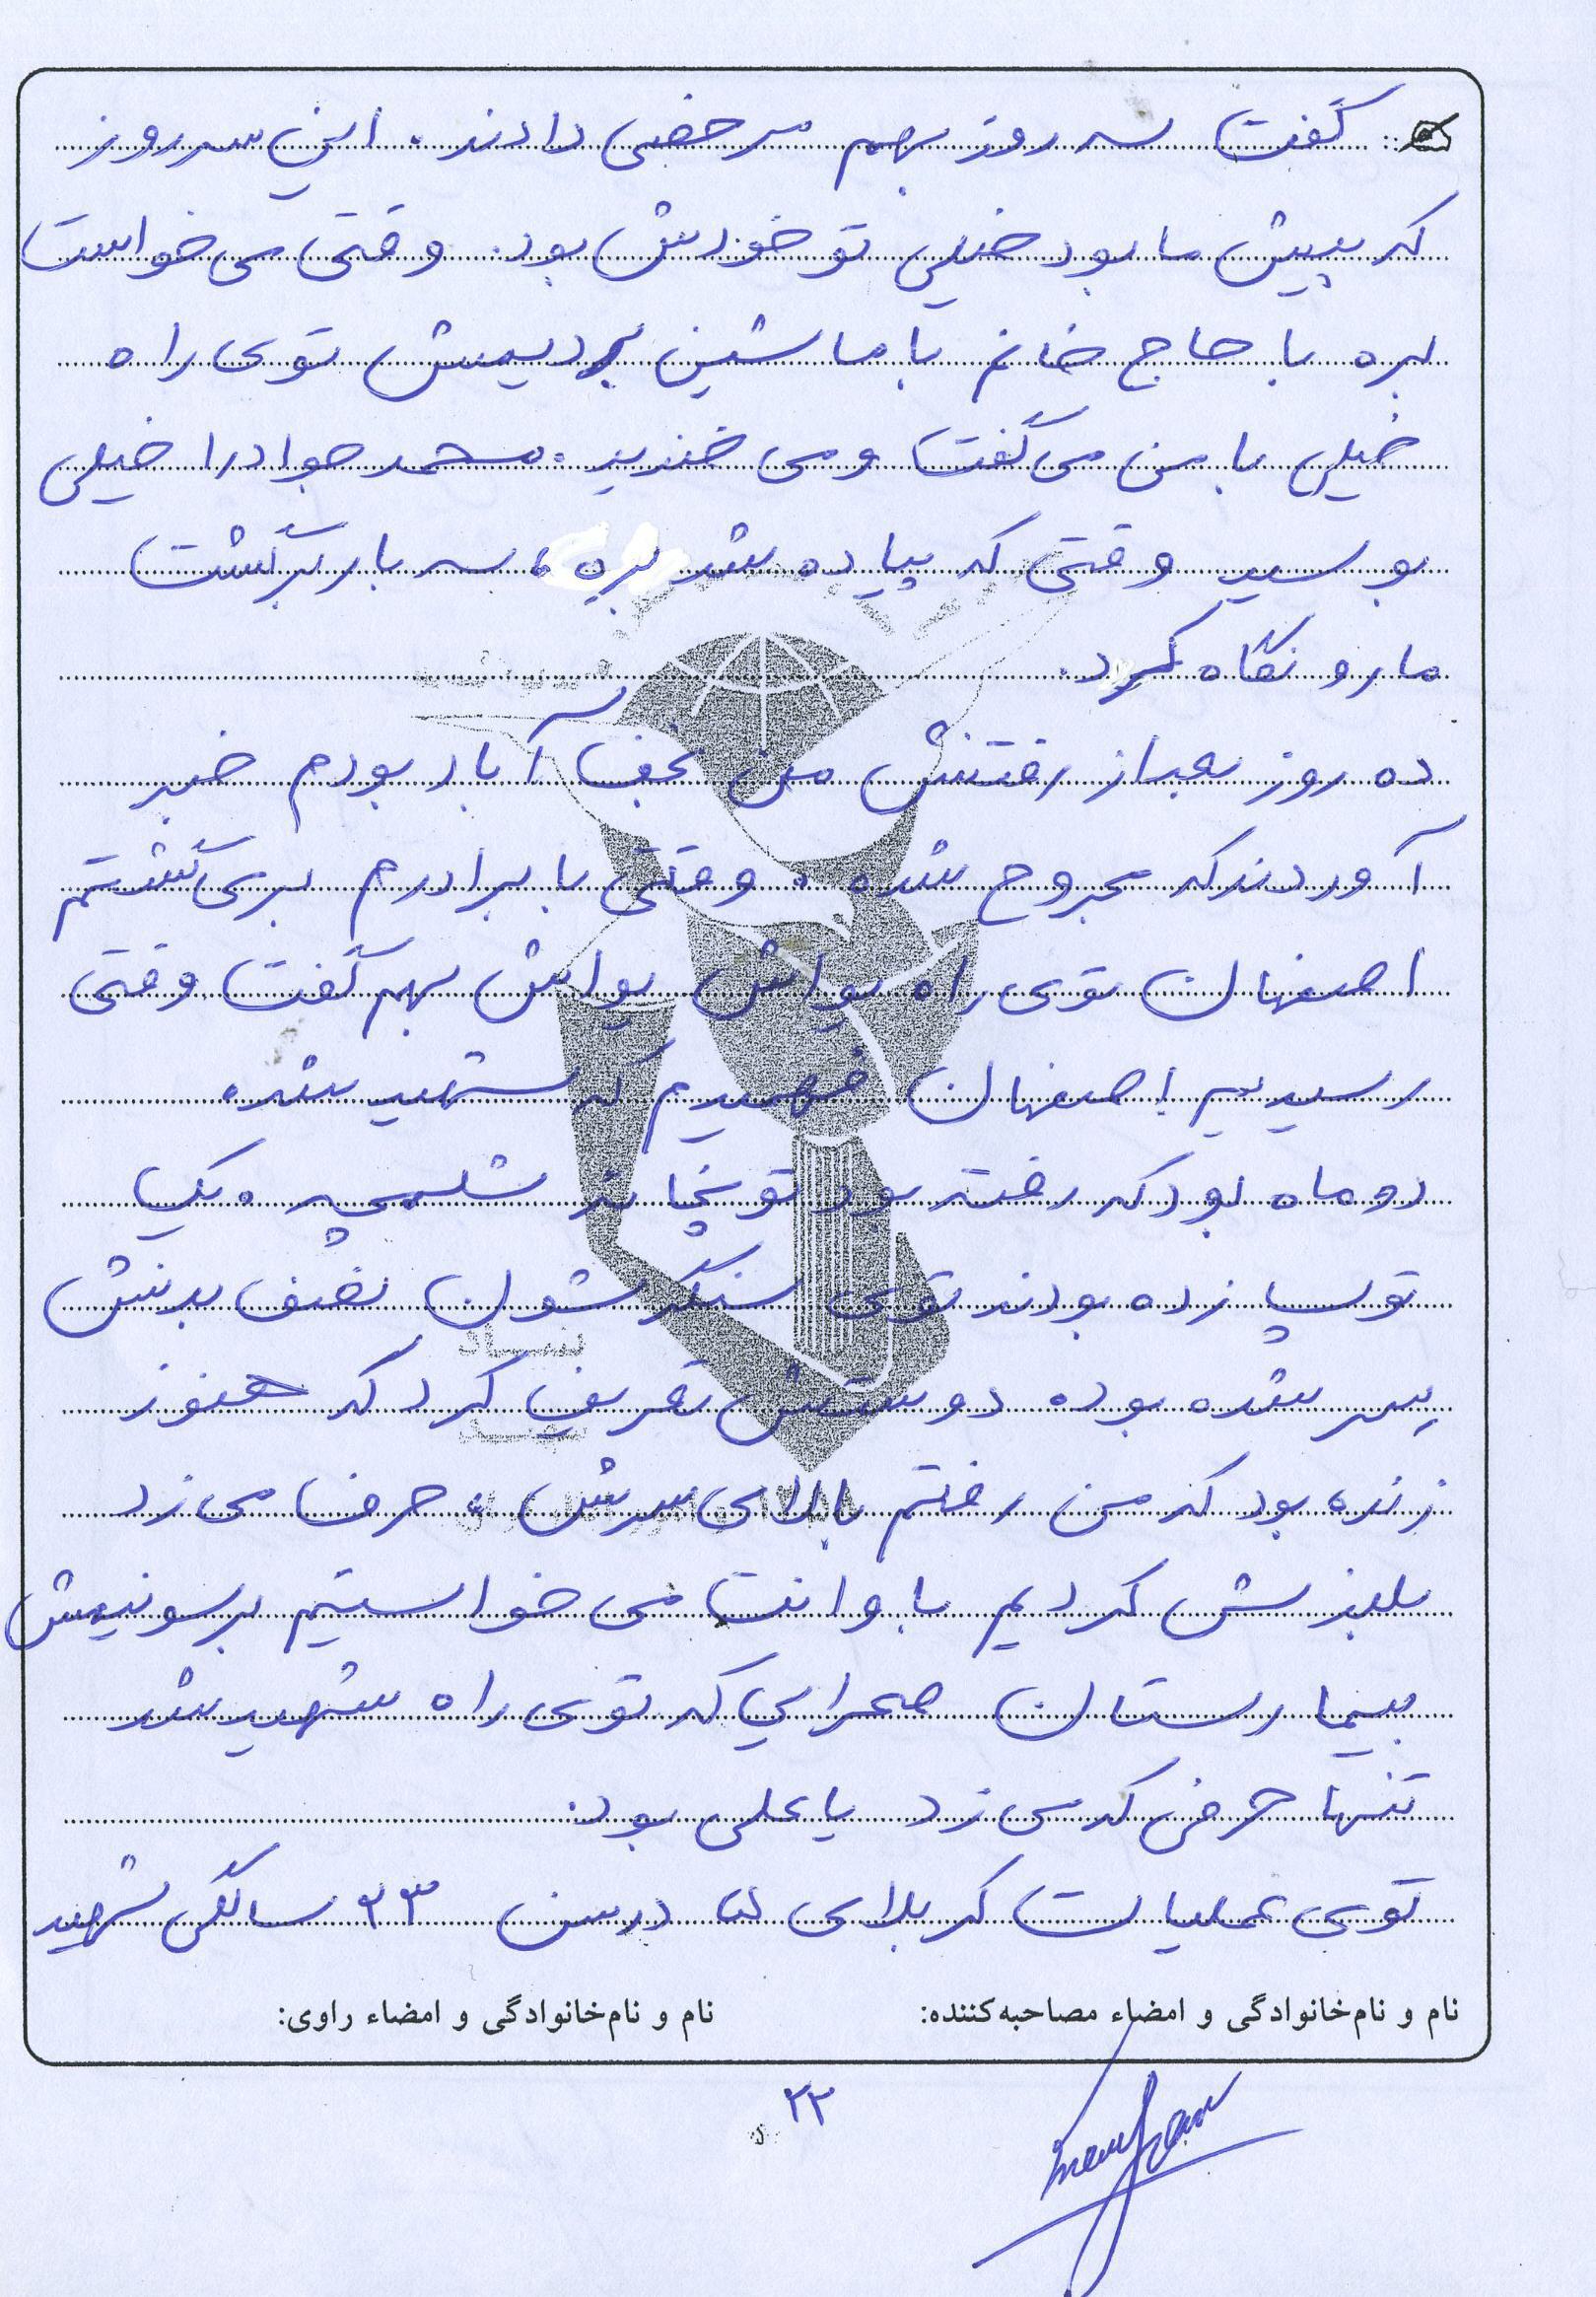 گفت سه روز بهم مرخصی دادند. این سه روز
که پیش ما بود خیلی تو خودش بود. وقتی می خواست
بره با حاج خانم با ماشین بردیمش توی راه
خیلی با من می گفت و می خندید. محمد جواد را خیلی
بوسید وقتی که پیاده شد بره، سه بار برگشت
مارو نگاه کرد.
ده روز بعد از رفتنش من نجف آباد بودم خبر
آوردند که مجروح شده. وقتی با برادرم برمی گشتم
اصفهان توی راه یواش یواش بهم گفت وقتی
رسیدیم اصفهان فهمیدم که شهید شده
دو ماه بود که رفته بود توپخانه شلمچه. یک
توپ زده بودند توی سنگرشون نصف بدنش
سر شده بوده دوستش تعریف کرد که هنوز
زنده بود که من رفتم بالای سرش، حرف می زد
بلندش کردیم با وانت می خواستیم برسونیمش
بیمارستان صحرایی که توی راه شهید شد
تنها حرفی که می زد یا علی بود.
توی عملیات کربلای در سن ۲۳ سالگی شهید
نام و نام‌خانوادگی و امضاء مصاحبه‌کننده: نام و نام‌خانوادگی و امضاء راوی:
۲۳